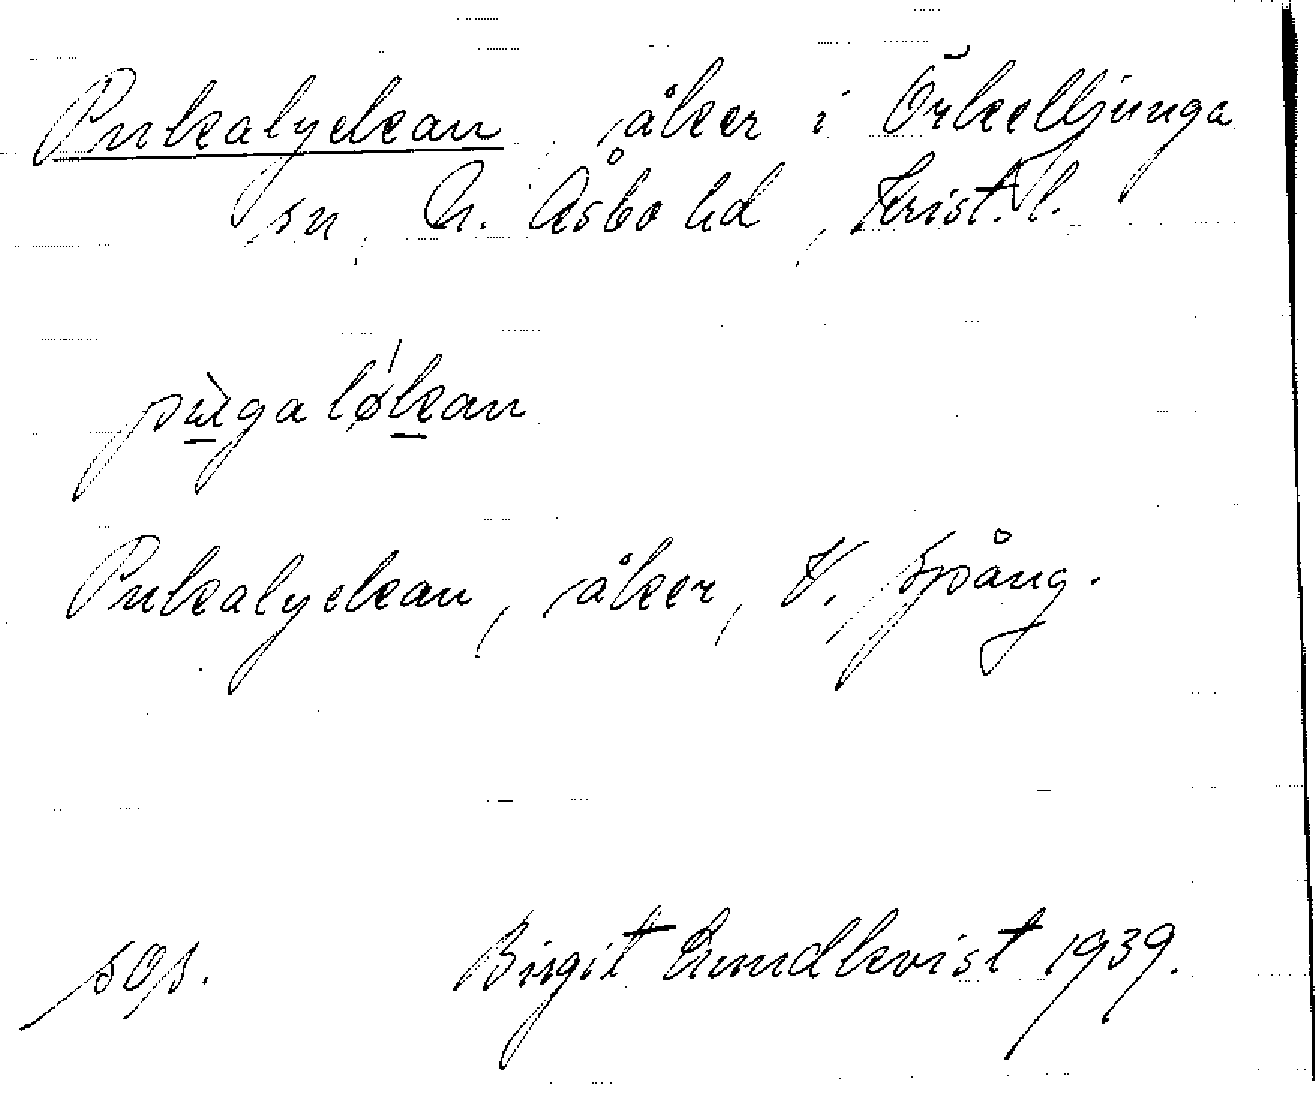 Pukalyckan, åker i Örkelljunga
sn, N. Åsbo hd, Krist. l.
pùgaló̱kan
Pukalyckan, åker, V. Spång.
sos. Birgit Lundkvist 1939.